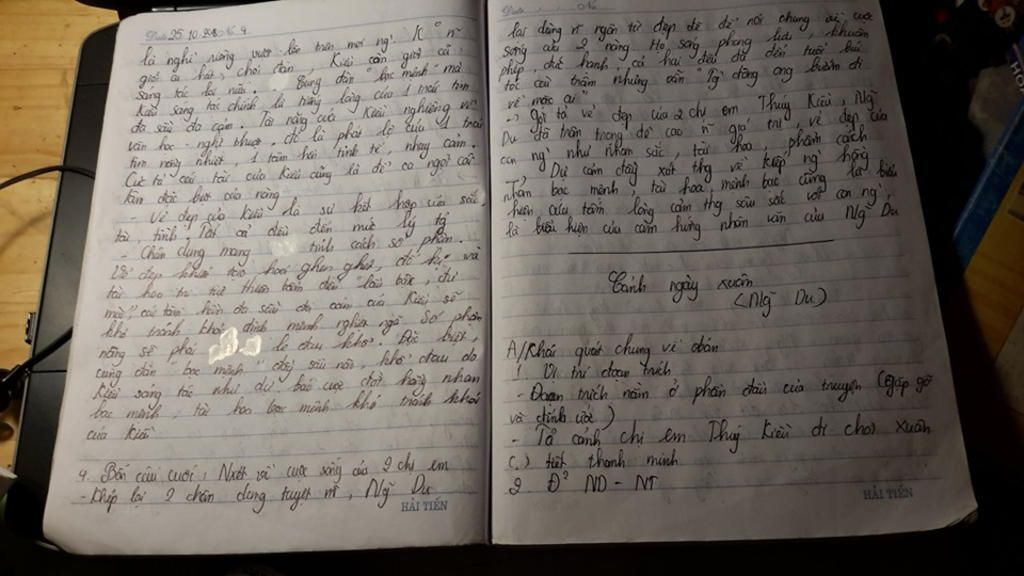 Date 25.10.208 No 4
là nghề riêng vượt lên trên mọi ng'. Kô ~n
giỏi ca hát, chơi đàn, Kiều còn giỏi cả
sáng tác lại nữa. Cung đàn "bạc mệnh" mà
Kiều sáng tác chính là tiếng lòng của 1 trái tim
đa sầu đa cảm. Tài năng của Kiều nghiêng về
văn học - nghệ thuật. đó là phát lộ của 1 trái
tim nồng nhiệt, 1 tâm hồn tinh tế, nhạy cảm.
Cực tả cái tài của Kiều cũng là để ca ngợi cái
tâm đặc biệt của nàng
- Vẻ đẹp của Kiều là sự kết hợp của sắc,
tài, tình. Tất cả đều đến mức lý tg
- Chân dung mang tính cách số phận.
Vẻ đẹp khiến tạo hoá ghen ghét, đố kị và
tài hoa trí tuệ thiên bẩm đủ "lai bậc", đủ
mùi" cái tâm hồn đa sầu đa cảm của Kiều sẽ
khó tránh khỏi định mệnh nghiệt ngã. Số phận
nàng sẽ phải là đau khổ. Đặc biệt,
cung đàn bạc mệnh đầy sầu não, khổ đau do
Kiều sáng tác như dự báo cuộc đời hồng nhan
bạc mệnh, tài hoa bạc mệnh khó tránh khỏi
của Kiều
4. Bốn câu cuối: Nhận xét về cuộc sống của 2 chị em
- Khép lại 2 chân dung tuyệt mĩ, Ng~ Du
HẢI TIẾN
Date . . . . No
lại dùng ~n ngôn từ đẹp đẽ để nói chung về cuộc
sống của 2 nàng. Họ sống phong lưu, khuôn
phép, đức hạnh, cả hai đều đã đến tuổi búi
tóc cài trâm nhưng vẫn "Tg' đông ong bướm đi
về mặc ai"
-> Gợi tả vẻ đẹp của 2 chị em Thuý Kiều, Ng~
Du đã trân trọng đề cao ~n giá trị, vẻ đẹp của
con ng' như nhan sắc, tài hoa, phẩm cách
Dự cảm đầy xót thg về kiếp ng' hồng
nhan bạc mệnh, tài hoa mệnh bạc cũng là biểu
hiện của tấm lòng cảm thg sâu sắc với con ng'
là biểu hiện của cảm hứng nhân văn của Ng~ Du
Cảnh ngày xuân
(Ng~ Du)
A/ Khái quát chung về đoạn
1. Vị trí đoạn trích
- Đoạn trích nằm ở phần đầu của truyện (Gặp gỡ
và đính ước)
- Tả cảnh chị em Thuý Kiều đi chơi xuân
(.) tiết thanh minh
2 Đ² ND - NT
HẢI TIẾN